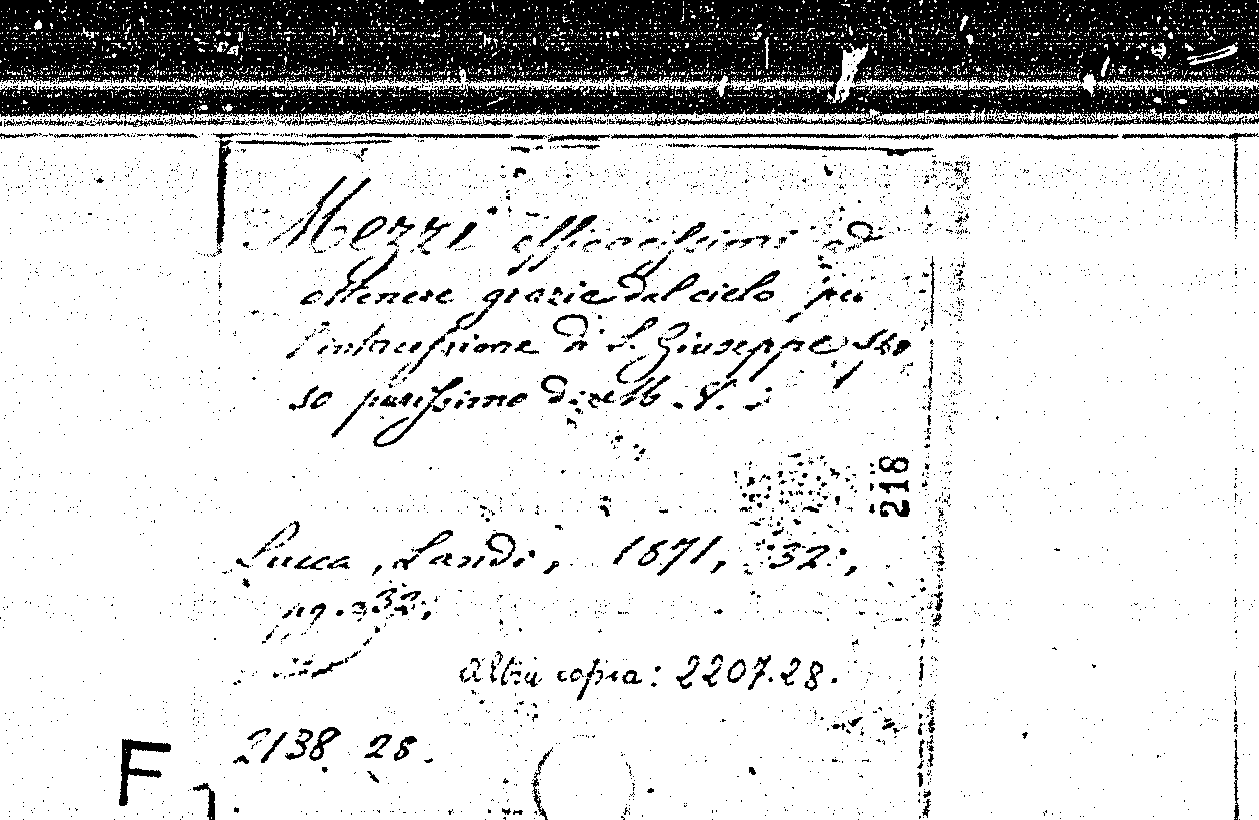 Mezzi efficacissimi ad
ottenere grazie dal cielo per
l'intercessione di S. Giuseppe spo
so purissimo di M. V.
218
Lucca, Landi, 1871, 32°,
pg. 32.
Altra copia: 2207.28.
2138 28.
F